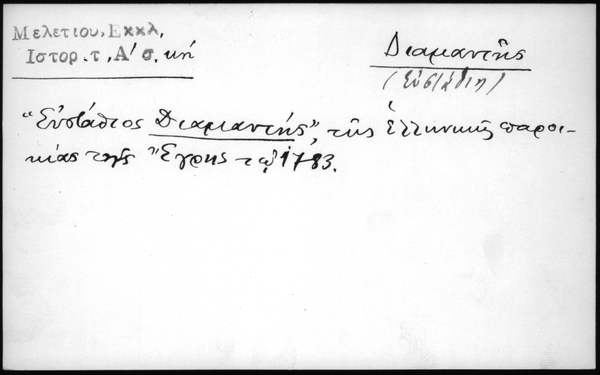 Μελετίου, Εκκλ,
Ιστορ. τ, Α' σ, κή
Διαμαντῆς
(Εὐστάθιος)
"Εὐστάθιος Διαμαντής", τῆς Ἑλληνικῆς παροι-
κίας τῆς Ἔγρης τῷ 1783.